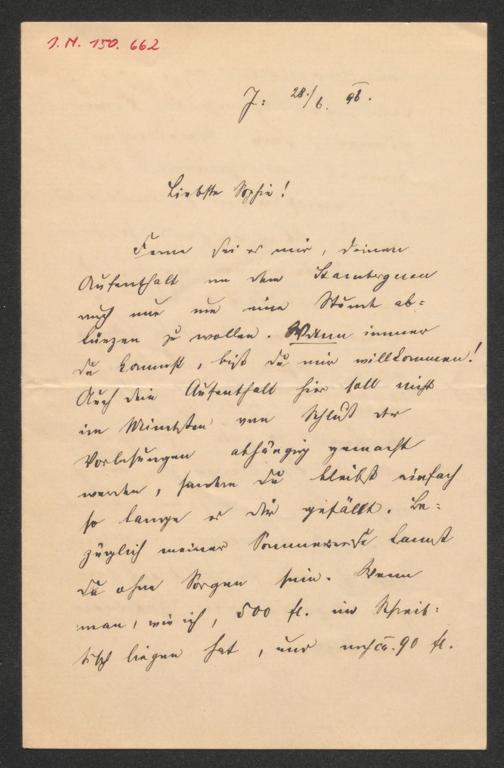 I. N. 150. 662
J: 28./6. 96.
Liebste Sophie!
Ferne sei es mir, deinen
Aufenthalt an dem Starnbergersee
auch nur um eine Stunde ab-
kürzen zu wollen. Wann immer
du kommst, bist du mir willkommen!
Auch dein Aufenthalt hier soll nicht
im Mindesten vom Schluß der
Vorlesungen abhängig gemacht
werden, sondern du bleibst einfach
so lange es dir gefällt. Be-
züglich meiner Sommerreise kannst
du ohne Sorgen sein. Wenn
man, wie ich, 500 fl. im Schreib-
tisch liegen hat, und noch ca. 90 fl.